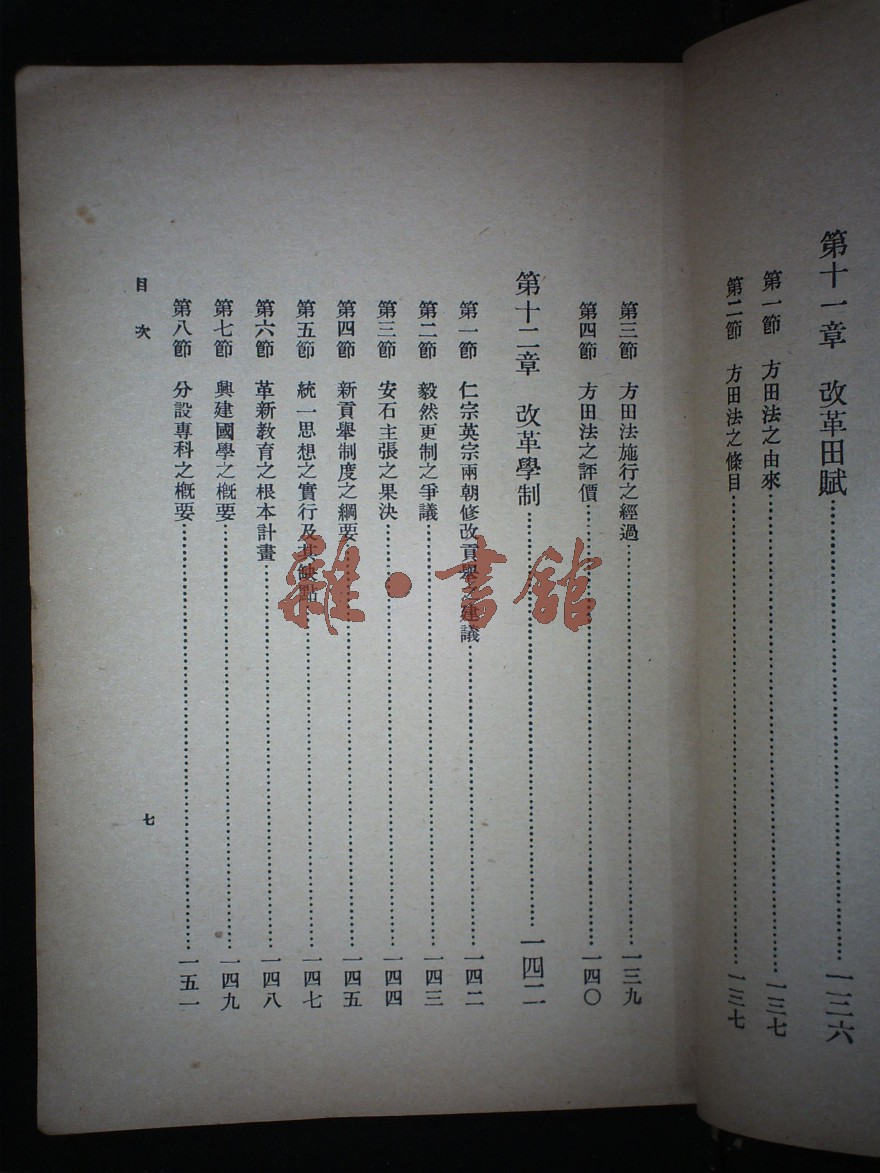 第十一章 改革田賦……一三六
第一節 方田法之由來……一三七
第二節 方田法之條目……一三七
第三節 方田法施行之經過……一三九
第四節 方田法之評價……一四〇
第十二章 改革學制……一四二
第一節 仁宗英宗兩朝修改貢舉之建議……一四二
第二節 毅然更制之爭議……一四三
第三節 安石主張之果決……一四四
第四節 新貢舉制度之綱要……一四五
第五節 統一思想之實行及其缺點……一四七
第六節 革新教育之根本計畫……一四八
第七節 興建國學之概要……一四九
第八節 分設專科之概要……一五一
目次
七
雜·書館